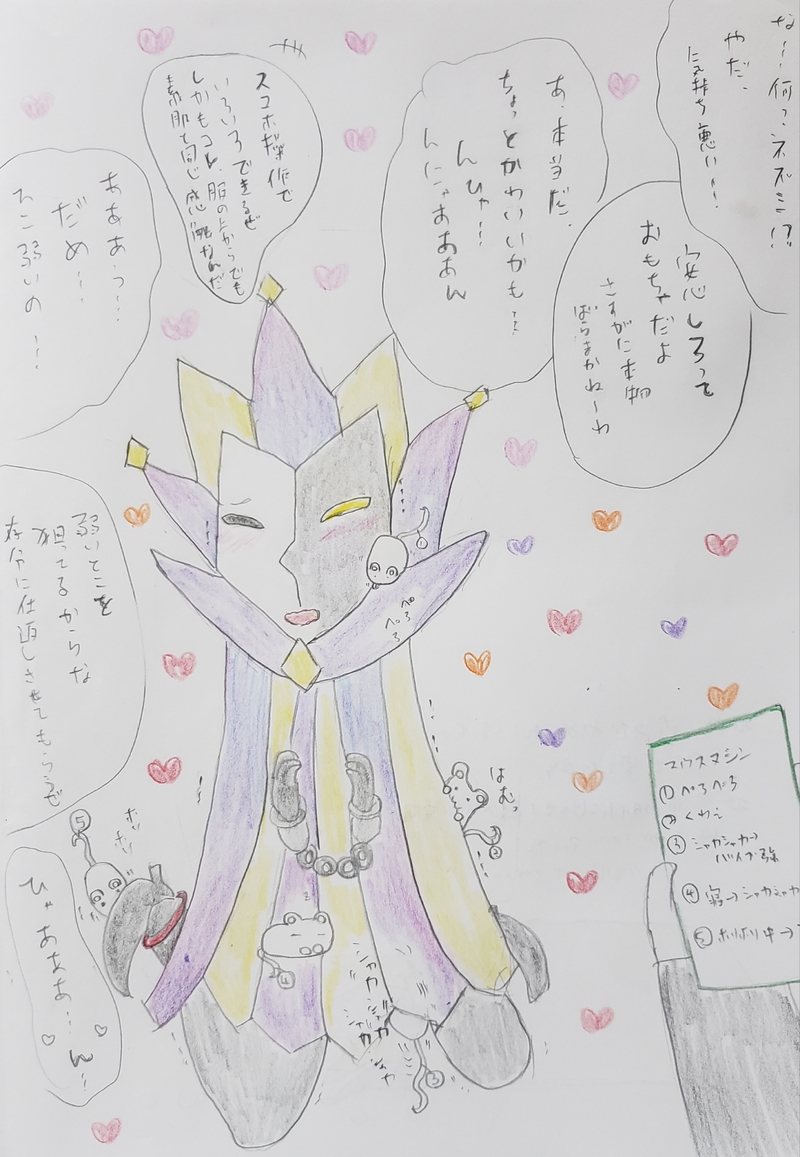 な~~何っ、ネズミ!?
やだ、
気持ち悪い~!
安心しろって
おもちゃだよ
さすがに本物
ばらまかね~わ
あ、本当だ、
ちょっとかわいいかも…
んひゃ~!
んにゃあああん
スマホだ操作で
いろいろできるぜ
しかもコレ、服の上からでも
素肌と同じ感触なんだ
あああっ…
だめ…
そこ弱いの…
弱いとこを
狙ってるからな
存分に仕返しさせてもらうぜ
ひゃあああ…ん
ぺろ
ぺろ
はむっ
シャカ
シャカ
マウスマシン
①ペろペろ
②くわえ
③シャカシャカ→
バイブ強
④寝→シャカシャカ
⑤ホリホリ中→
①
②
③
④
⑤
z